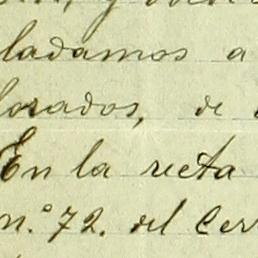 ladamos a
lorados, de
En la recta
n.º 72. del Cer